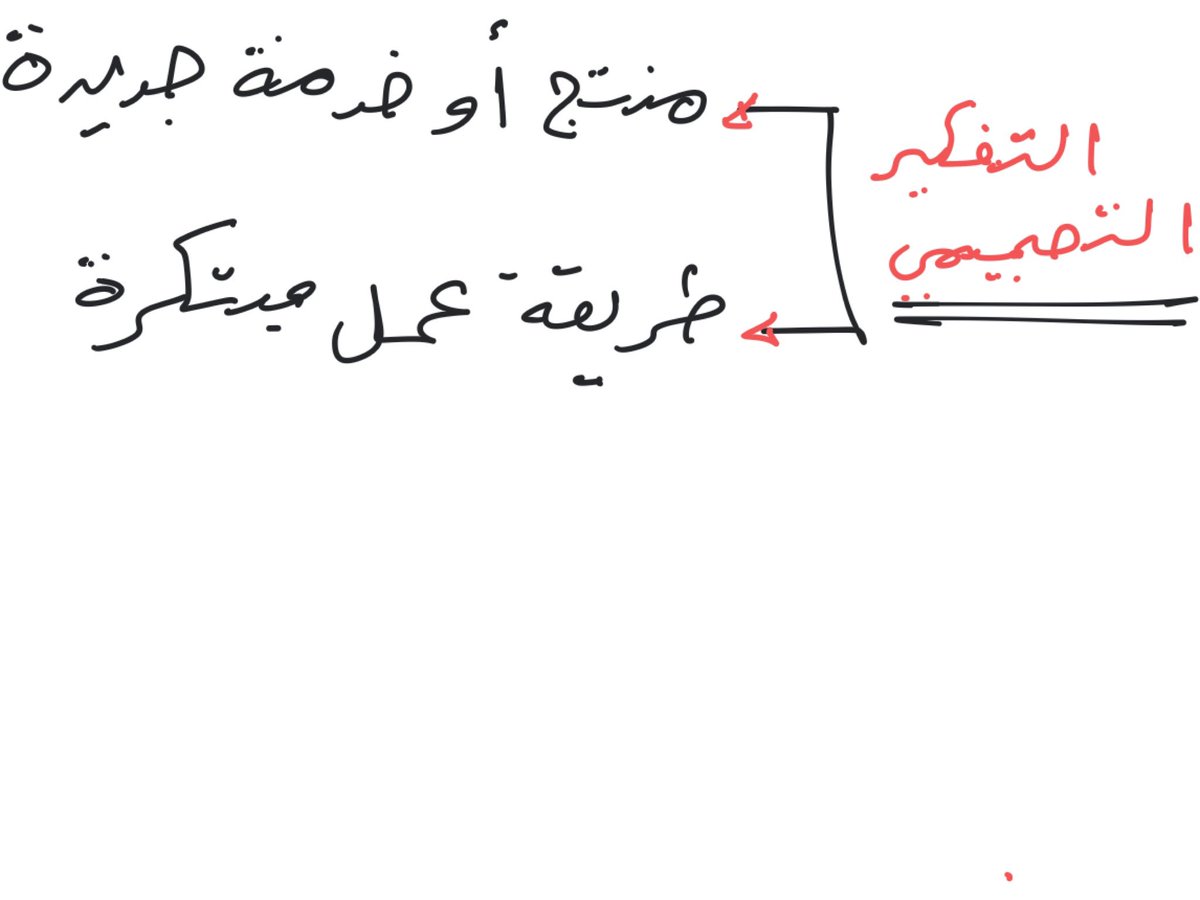 التفكير
التصميمي
منتج أو خدمة جديدة
طريقة عمل مبتكرة